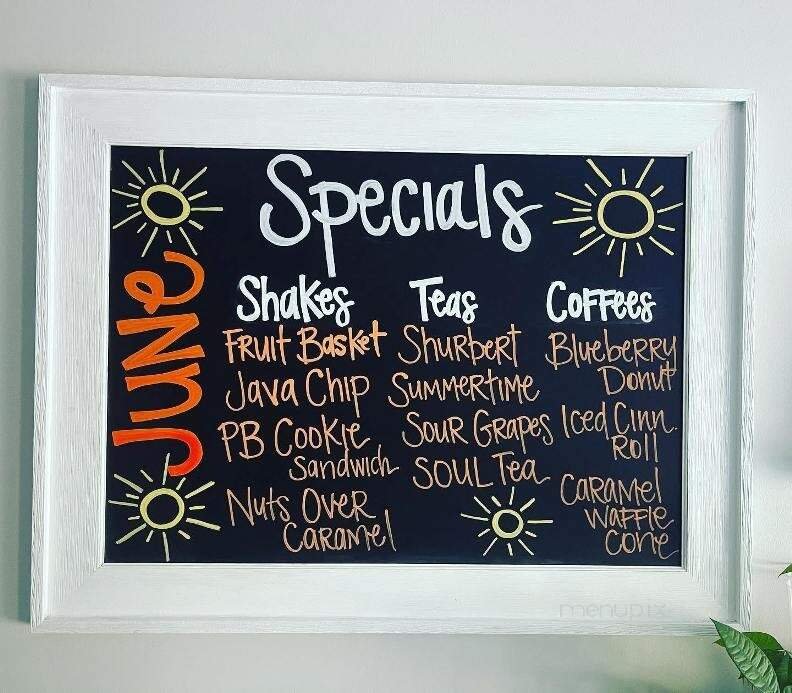 Specials
JUNE
Shakes
Fruit Basket
Java Chip
PB Cookie
Sandwich
Nuts Over
Caramel
Teas
Shurbert
Summertime
Sour Grapes
SOUL Tea
Coffees
Blueberry
Donut
Iced Cinn.
Roll
Caramel
Waffle
Cone
menupix